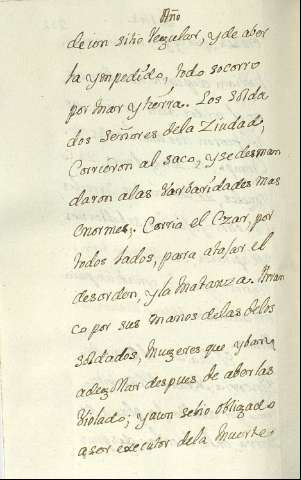 Año
de ion sitio Regular, y de aber
la ympedido, todo socorro
por mar y tierra. Los solda
dos Señores dela Ziudad,
Corrieron al saco, y se desman
daron alas Varbaridades mas
enormes. Corria el Czar, por
todos lados, parra atajar el
desorden, y la Matanza. Arran
co por sus manos delas delos
soldados, Mugeres que yban
adegollar despues de aber las
Violado; y aun se bio obligado
aser executor dela Muerte